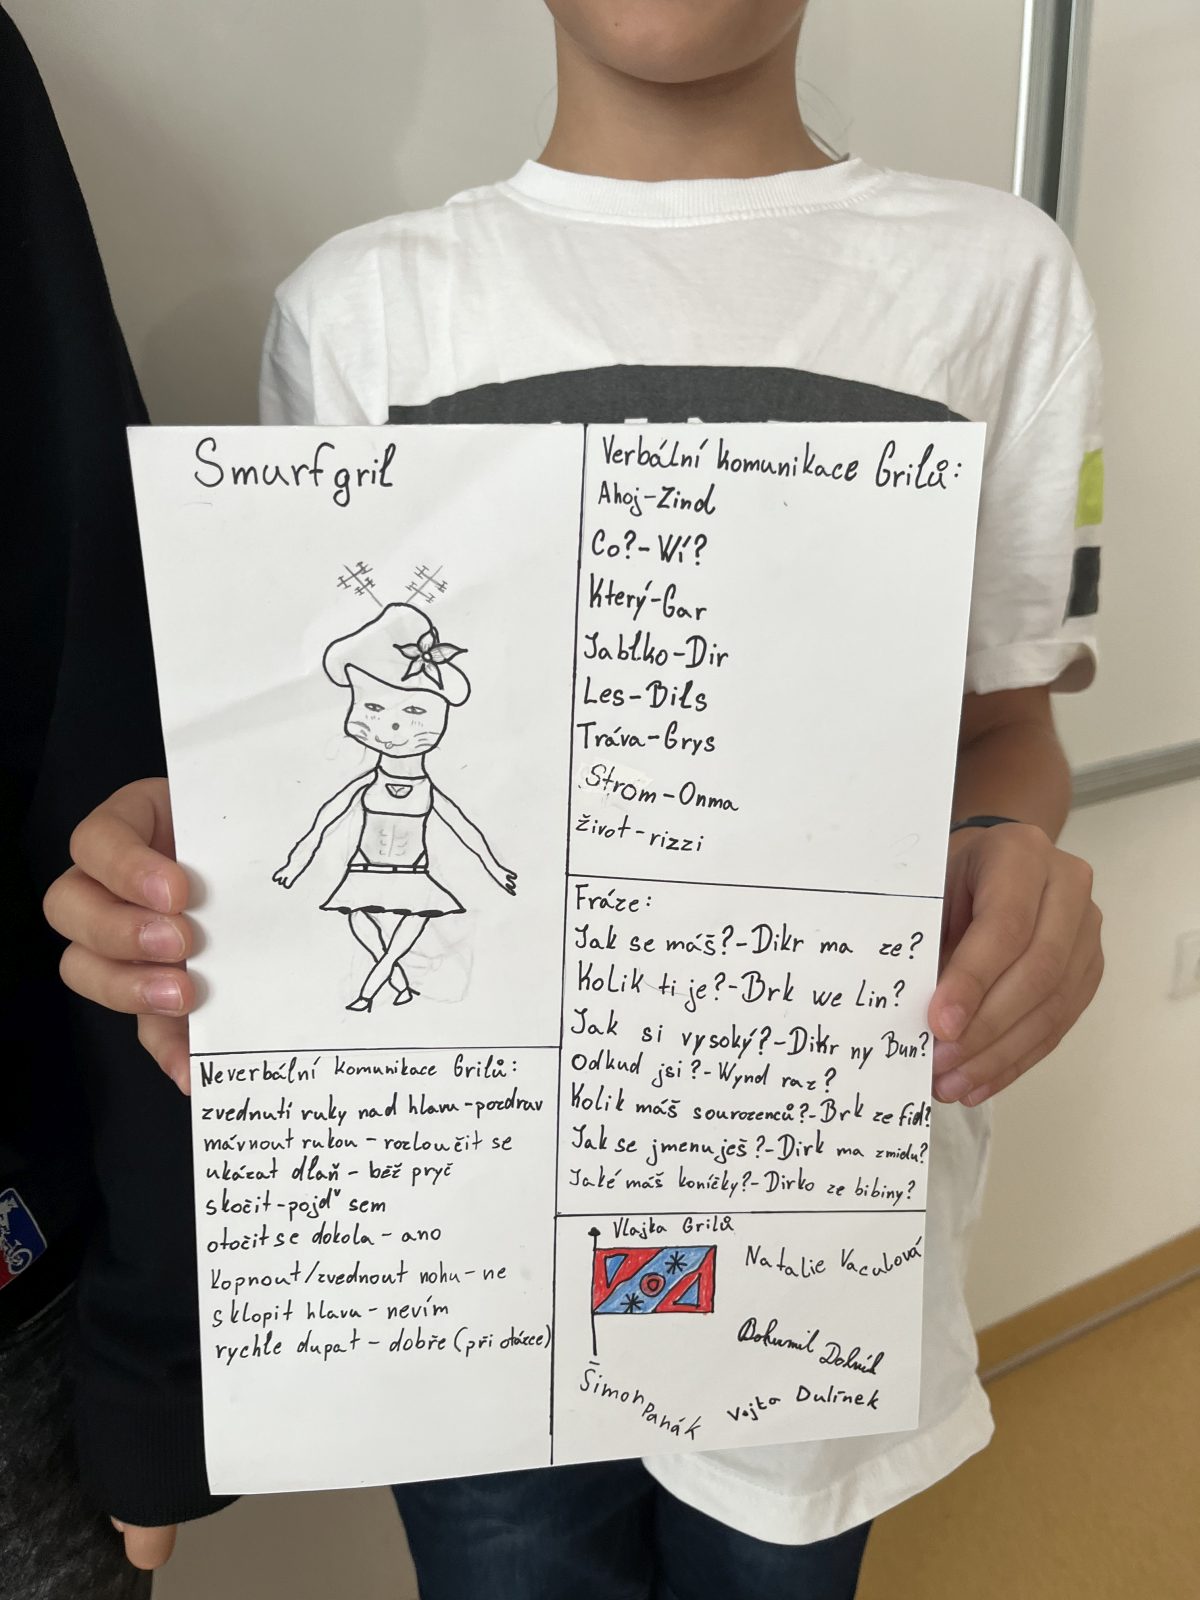 Smurfgril
Verbální komunikace Grilů:
Ahoj-Zind
Co?-Wí?
Který-Gar
Jablko-Dir
Les-Bils
Tráva-Grys
Strom-Onma
život-rizzi
Fráze:
Jak se máš?-Dikr ma ze?
Kolik ti je?-Brk we Lin?
Jak si vysoký?-Dikr ny Bun?
Odkud jsi?-Wynd raz?
Kolik máš sourozenců?-Brk ze fid?
Jak se jmenuješ?-Dirk ma zmidu?
Jaké máš koníčky?-Dirko ze bibiny?
Neverbální komunikace Grilů:
zvednutí ruky nad hlavu-pozdrav
mávnout rukou-rozloučit se
ukázat dlaň-běž pryč
skočit-pojď sem
otočit se dokola-ano
kopnout/zvednout nohu-ne
sklopit hlavu-nevím
rychle dupat-dobře (při otázce)
Vlajka Grilů
Natalie Vaculová
Bohumil
Vojta Dulínek
Šimon